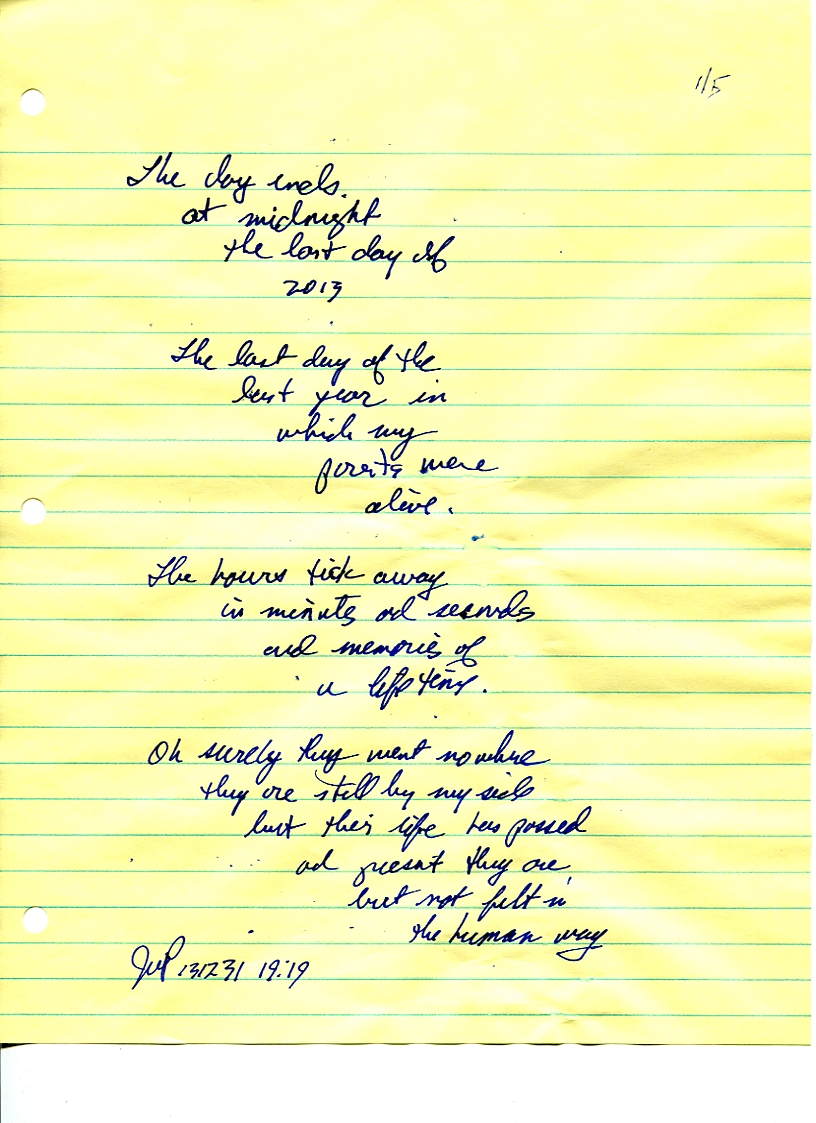 1/5
The day ends
at midnight
the last day of
2013
The last day of the
last year in
which my
parents were
alive.
The hours tick away
in minutes and seconds
and memories of
a life time.
Oh surely they went nowhere
they are still by my side
but their life has passed
and present they are,
but not felt in
the human way
JvP 131231 19:19